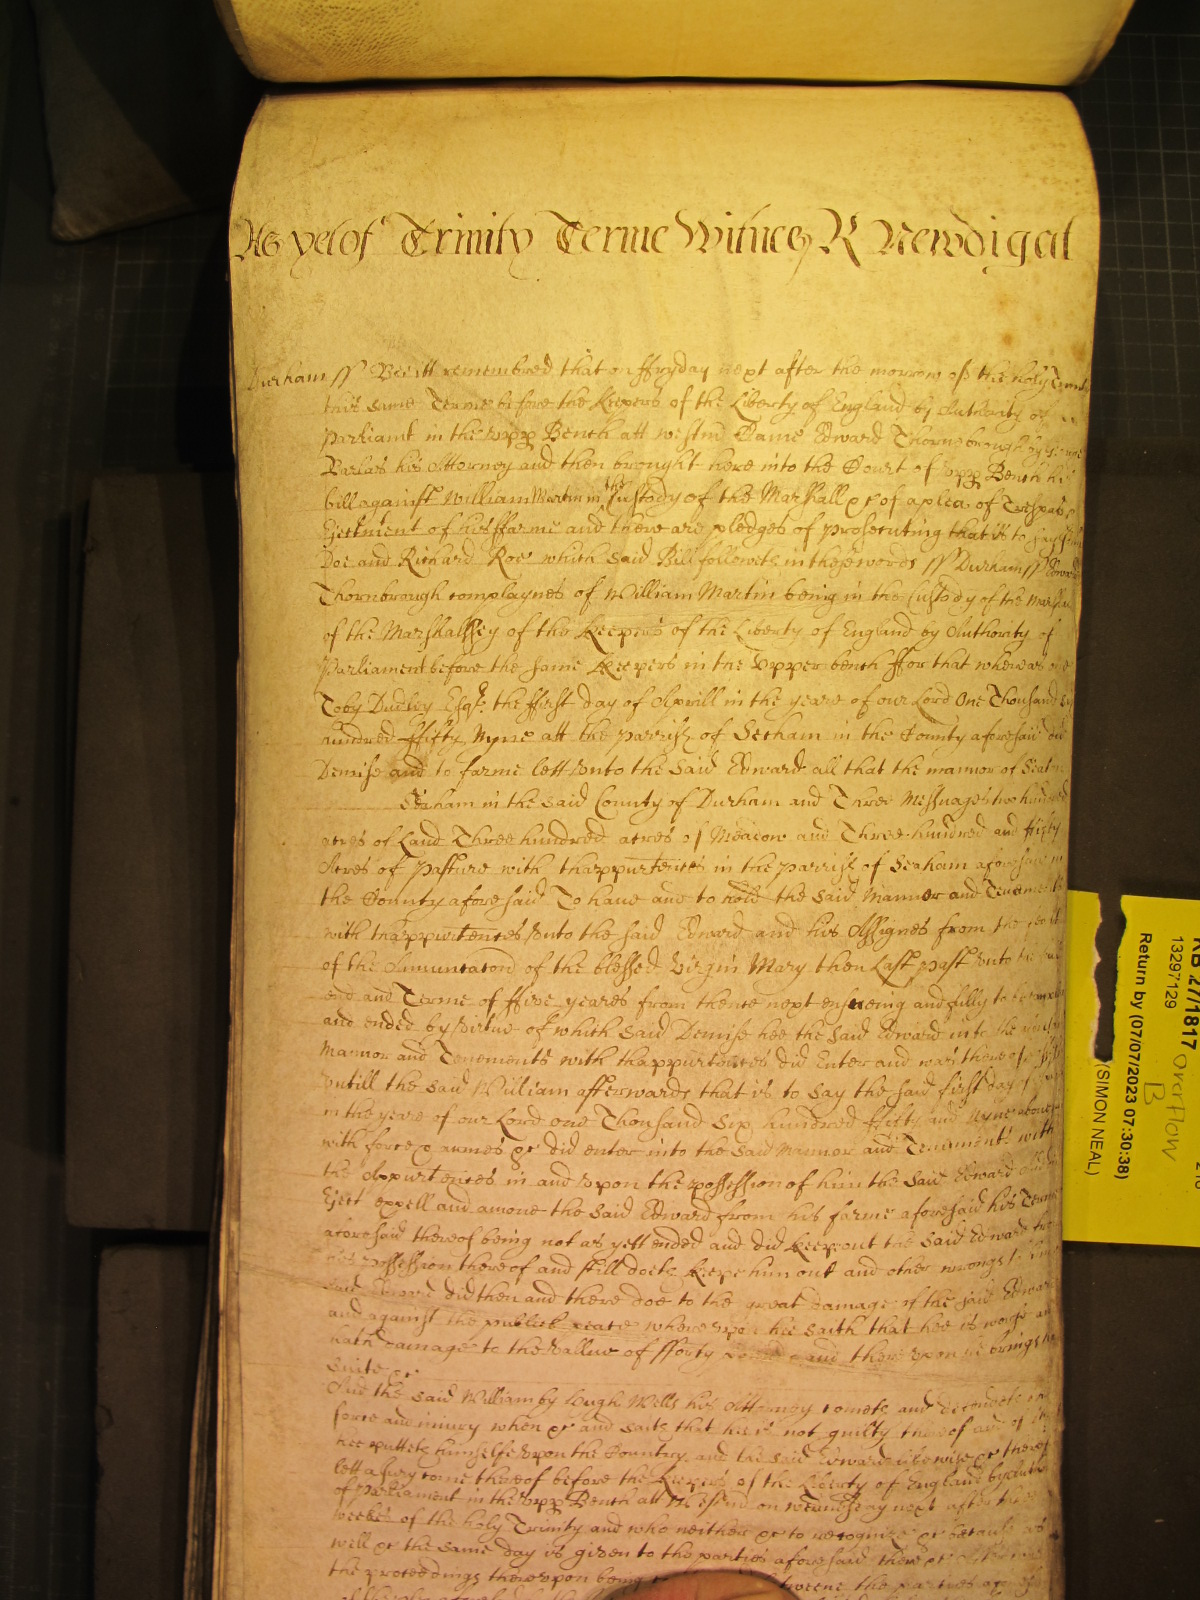 As yet of Trinity Terme Witnes R Newdigat
Durham ss Bee itt remembred that on ffryday next after the morrow of the holy
this same Terme before the Keepers of the Liberty of England by Authority of
Parliamt in the Vpp Bench att Westm Came Edward Thornebrough by
his Attorney and then brought here into the Court of Vpp Bench his
bill against William Martin in the Custody of the Marshall &c of a plea of Trespas &
Ejectment of his ffarme and there are pledges of prosecuting that is to say John
Doe and Richard Roe which said Bill followeth in these words ss Durham ss Edward
Thornbrough complaynes of William Martin being in the Custody of the Marshall
of the Marshallsey of the Keepers of the Liberty of England by Authority of
Parliament before the same Keepers in the Vpper bench ffor that whereas one
Toby Dudley Esqr. the ffirst day of Aprill in the yeare of our Lord One Thousand Six
hundred ffifty Nyne att the parrish of Seeham in the County aforesaid did
Demise and to farme lett Vnto the said Edward all that the mannor of Seaton
Seaham in the said County of Durham and Three Messuages two hundred
acres of Land Three hundred acres of Meadow and Three hundred and fifty
Acres of pasture with thappurtences in the parrish of Seaham aforesaid in
the County aforesaid To have and to hold the said Mannor and Tenements
with thappurtences Vnto the said Edward and his Assignes from the feast
of the Annuntacon of the blessed Virgin Mary then Last past Vnto the full
end and Terme of ffive yeares from thence next ensueing and fully to be
and ended by Virtue of which said Demise hee the said Edward into the
Mannor and Tenements with thappurtences did Enter and was thereof
vntill the said William afterwards that is to say the said first day of
in the yeare of our Lord one Thousand Six hundred ffifty and Nyne
with force & armes &c did enter into the said Mannor and Tenements with
the Appurtences in and Vpon the possession of him the said Edward and
Eject expell and amove the said Edward from his farme aforesaid his Terme
aforesaid thereof being not as yett ended and did keepe out the said Edward from
his possession thereof and still doeth keepe him out and other wrongs to him
said Edward did then and there doe to the great damage of the said Edward
and against the publick peace whereupon hee saith that hee is worse and
hath damage to the Vallue of fforty pounds and thereupon he brings his
suite &c
And the said William by Hugh Wells his Attorney cometh and defendeth
force and injury when &c and saith that hee is not guilty thereof and of
hee putteth himselfe Vpon the Country and the said Edward likewise &c therefore
lett a Jury come thereof before the Keepers of the Liberty of England by
of Parliament in the Vpp Bench att Westm on Wednesday next after three
weekes of the holy Trinity and who neither &c to recognize &c because as
well &c the same day is given to the parties aforesaid there &c
the proceedings thereupon being betweene the parties
RB 27/1817 overflow
13297129 B
Return by (07/07/2023 07:30:38)
(SIMON NEAL)